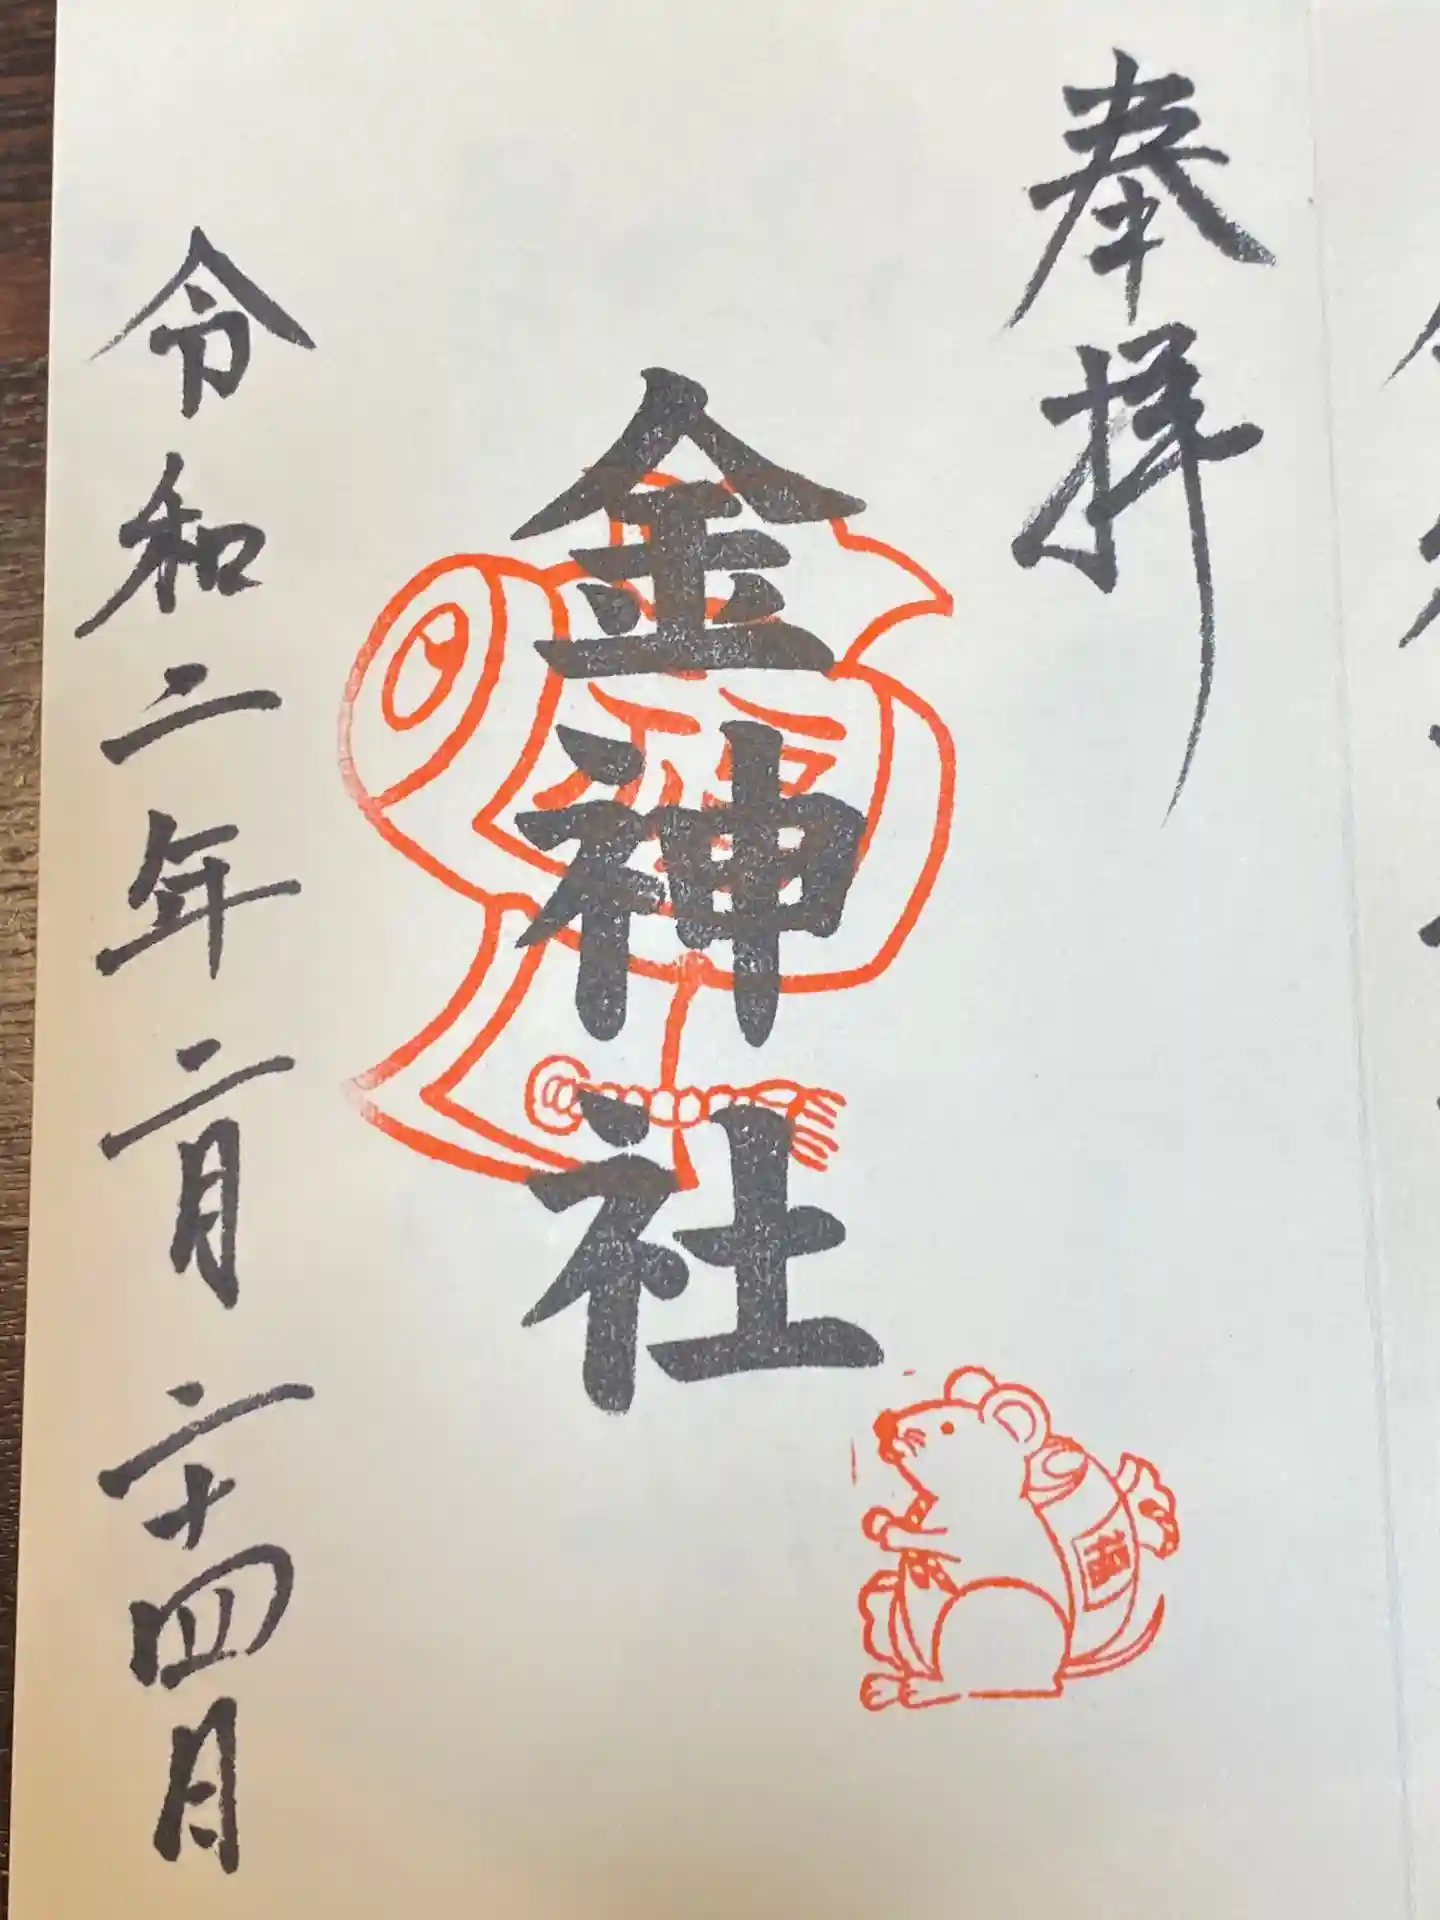 奉拝
金神社
福
令和二年二月二十四日